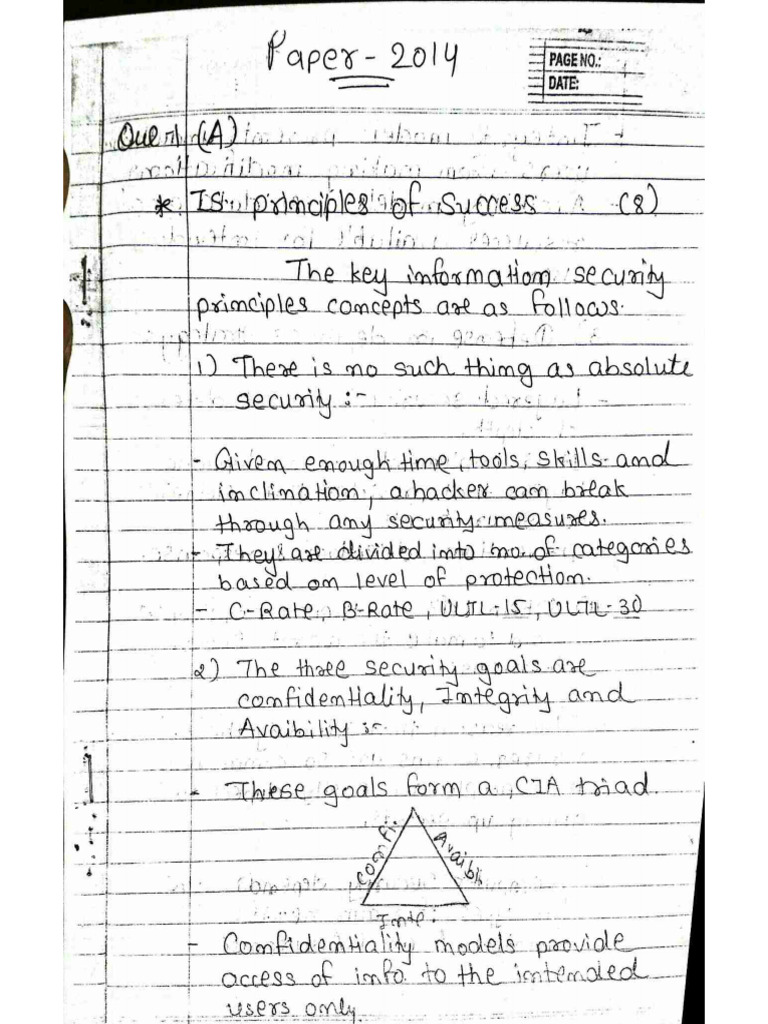 Paper - 2014
PAGE NO.:
DATE:
Que:1 (A)
* IS principles of success (8)
The key information security
principles concepts are as follows.
1) There is no such thing as absolute
security :-
- Given enough time, tools, skills and
inclination, a hacker can break
through any security measures.
- They are divided into no. of categories
based on level of protection.
- C-Rate, B-Rate, ULTL-15, ULTL-30
2) The three security goals are
confidentiality, Integrity and
Avaibility :-
- These goals form a CIA triad.
Confi.
Avaibl.
Inte.
- Confidentiality models provide
access of info to the intended
users only.